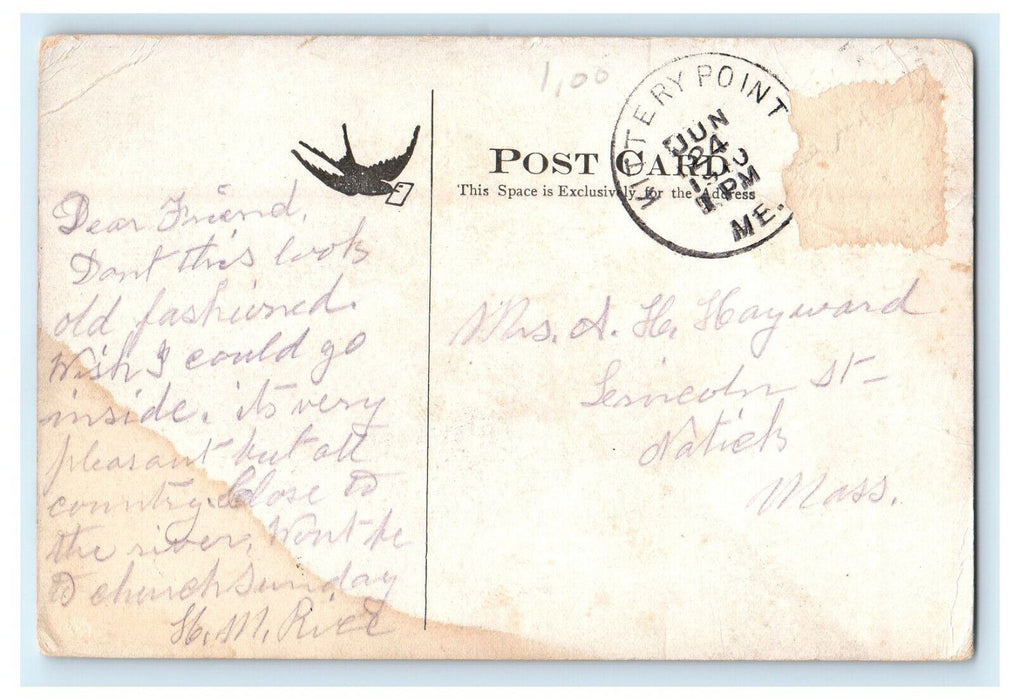 1,00
KITTERY POINT
JUN
24
1 PM
ME.
POST CARD
This Space is Exclusively for the Address
Dear Friend,
Dont this look
old fashioned.
Wish I could go
inside. its very
pleasant but all
country. Close to
the river. Wont be
to church Sunday
H. M. Rice
Mrs. A. H. Hayward
Lincoln St-
Natick
Mass.